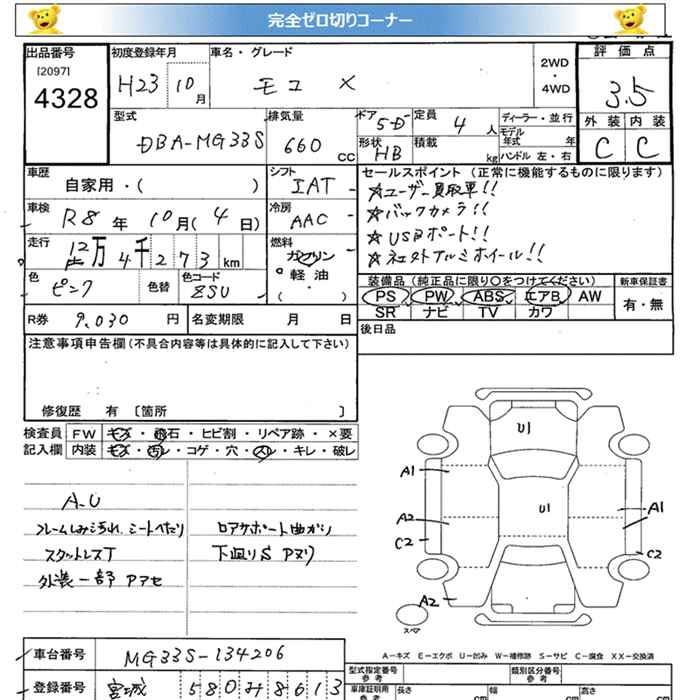 完全ゼロ切りコーナー
出品番号 初度登録年月 車名・グレード 2WD・4WD 評価点
[2097]
4328
H23 10月 モコ X
3.5
型式 排気量 ドア 5D 定員 4人 ディーラー・並行
外装 内装
DBA-MG33S 660cc 形状 HB 積載 kg モデル年式 年
C C
ハンドル 左・右
車歴 シフト セールスポイント (正常に機能するものに限ります)
自家用・( ) IAT
☆ユーザー買取車!!
車検 冷房
R8年10月(4日) AAC
☆バックカメラ!!
☆USBポート!!
走行 燃料
12万4千273km ガソリン
☆社外アルミホイール!!
軽油
( ・ )
色 色替 色コード
ピンク ZSU
装備品 (純正品に限り○をつけてください) 新車保証書
PS PW ABS エアB AW 有・無
SR ナビ TV カワ
R券 9,030円 名変期限 月 日
後日品
注意事項申告欄 (不具合内容等は具体的に記入して下さい)
修復歴 有 〔箇所 〕
検査員 FW キズ・飛石・ヒビ割・リペア跡・×要
記入欄 内装 キズ・汚レ・コゲ・穴・スレ・キレ・破レ
A-U
フレームしみ汚れ、シートへたり
スタットレスT
外装一部 Pアセ
ロアサポート曲がり
下廻りS Pヌリ
U1
A1
U1
A1
A2
C2
C2
A2
スペア
A-キズ E-エクボ U-凹み W-補修跡 S-サビ C-腐食 XX-交換済
車台番号 MG33S-134206
型式指定番号 参考 類別区分番号 参考
登録番号 宮城 580 み 8613
車庫証明用 参考 長さ cm 幅 cm 高さ cm